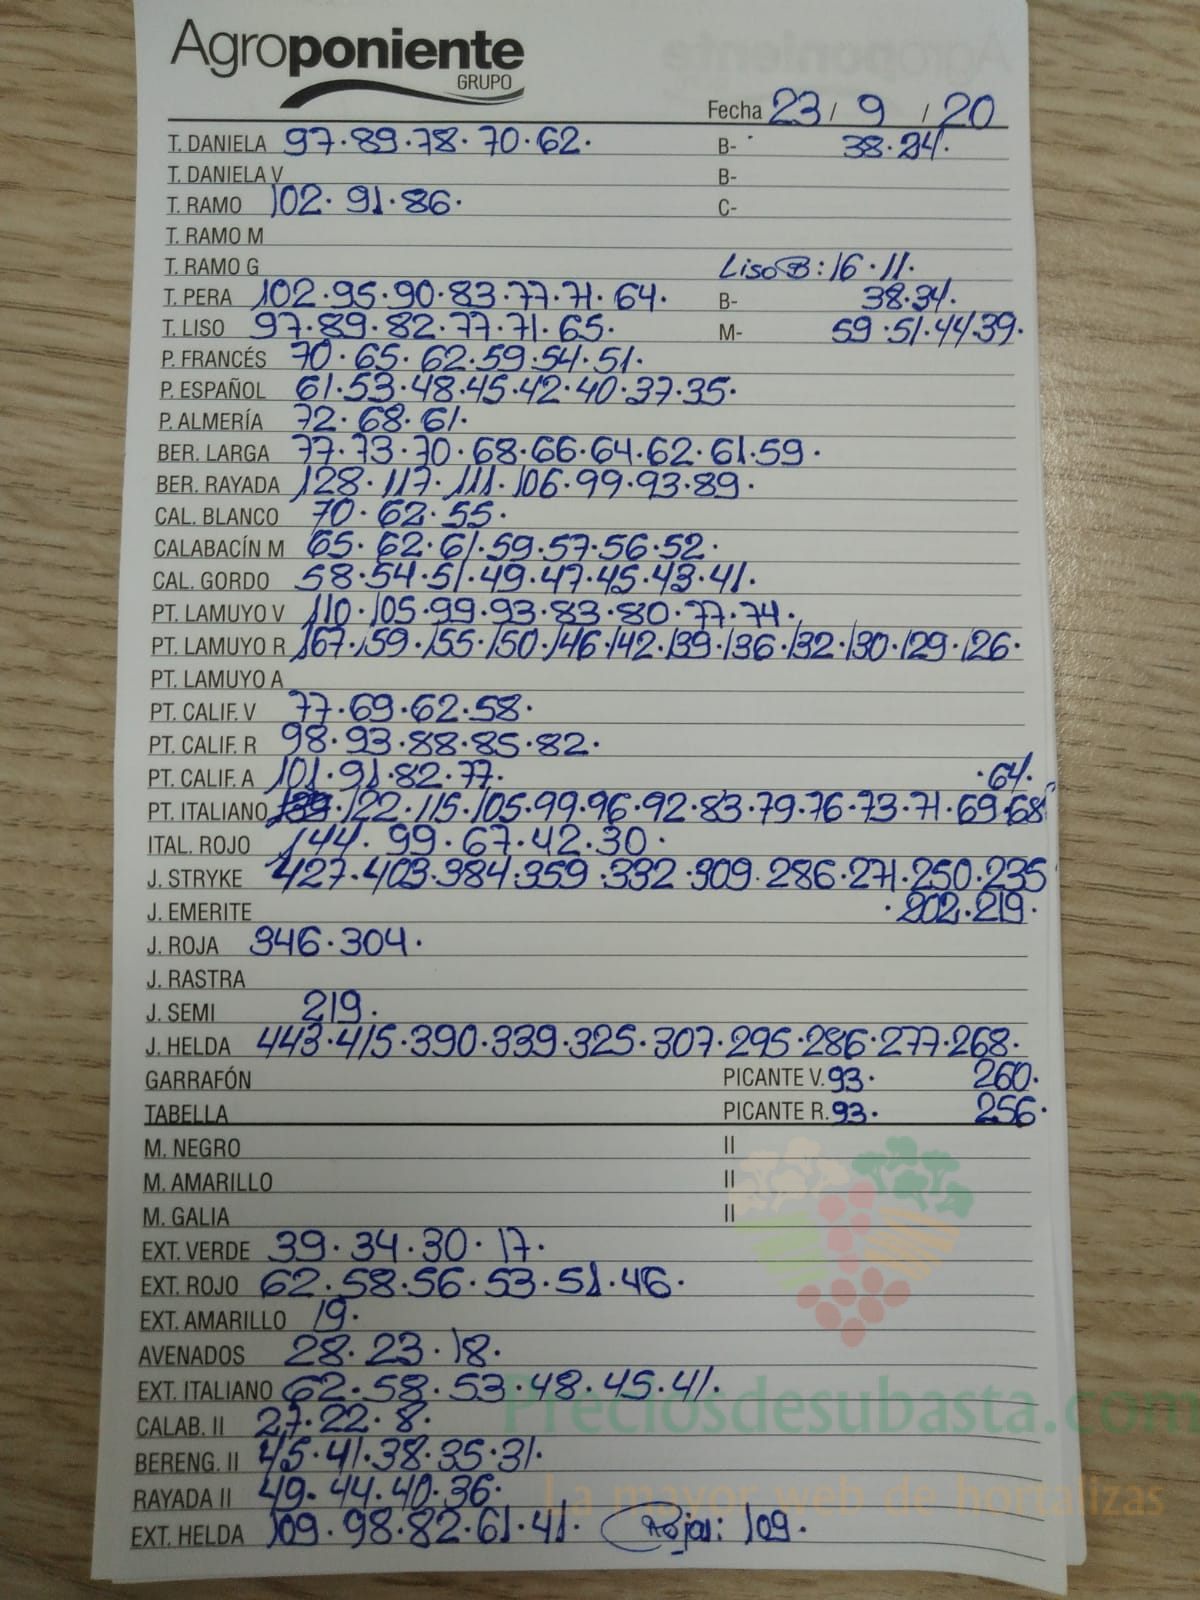 Agroponiente
GRUPO
Fecha 23 / 9 / 20
T. DANIELA 97·89·78·70·62· B- 38·24·
T. DANIELA V B-
T. RAMO 102·91·86· C-
T. RAMO M
T. RAMO G Liso B: 16·11·
T. PERA 102·95·90·83·77·71·64· B- 38·34·
T. LISO 97·89·82·77·71·65· M- 59·51·44·39·
P. FRANCÉS 70·65·62·59·54·51·
P. ESPAÑOL 61·53·48·45·42·40·37·35·
P. ALMERÍA 72·68·61·
BER. LARGA 77·73·70·68·66·64·62·61·59·
BER. RAYADA 128·117·111·106·99·93·89·
CAL. BLANCO 70·62·55·
CALABACÍN M 65·62·61·59·57·56·52·
CAL. GORDO 58·54·51·49·47·45·43·41·
PT. LAMUYO V 110·105·99·93·83·80·77·74·
PT. LAMUYO R 167·159·155·150·146·142·139·136·132·130·129·126·
PT. LAMUYO A
PT. CALIF. V 77·69·62·58·
PT. CALIF. R 98·93·88·85·82·
PT. CALIF. A 101·91·82·77· ·64·
PT. ITALIANO ·122·115·105·99·96·92·83·79·76·73·71·69·68·
ITAL. ROJO 144·99·67·42·30·
J. STRYKE 427·403·384·359·332·309·286·271·250·235
J. EMERITE ·202·219·
J. ROJA 346·304·
J. RASTRA
J. SEMI 219·
J. HELDA 443·415·390·339·325·307·295·286·277·268·
GARRAFÓN PICANTE V. 93· 260·
TABELLA PICANTE R. 93· 256·
M. NEGRO II
M. AMARILLO II
M. GALIA II
EXT. VERDE 39·34·30·17·
EXT. ROJO 62·58·56·53·51·46·
EXT. AMARILLO 19·
AVENADOS 28·23·18·
EXT. ITALIANO 62·58·53·48·45·41·
CALAB. II 27·22·8·
BERENG. II 45·41·38·35·31·
RAYADA II 49·44·40·36·
EXT. HELDA 109·98·82·61·41· Roja: 109·
Preciosdesubasta.com
La mayor web de hortalizas